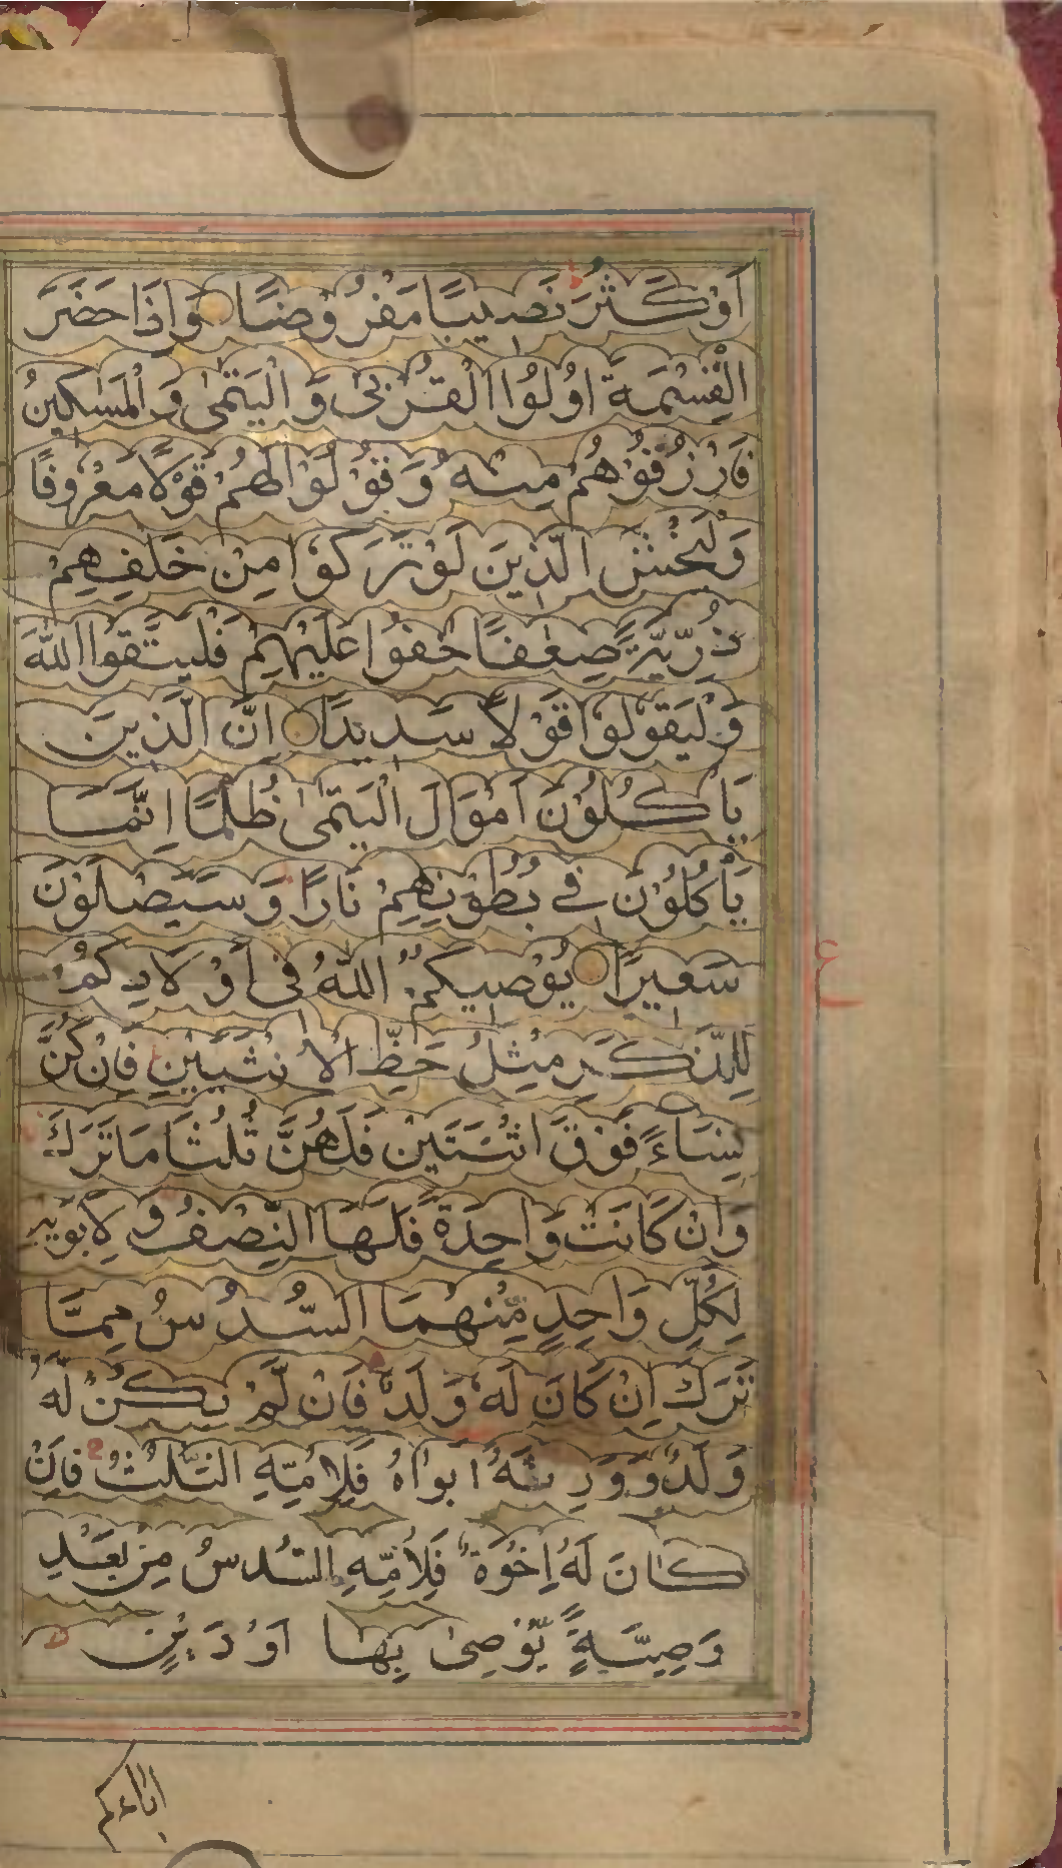 اَوْ كَثُرَ نَصِيبًا مَفْرُوْضًا وَاِذَا حَضَرَ
الْقِسْمَةَ اُولُوا الْقُرْبٰى وَ الْيَتٰمٰى وَ الْمَسٰكِينُ
فَارْزُقُوْهُمْ مِنْهُ وَقُوْلُوْا لَهُمْ قَوْلًا مَعْرُوْفًا
وَلْيَخْشَ الَّذِيْنَ لَوْ تَرَكُوْا مِنْ خَلْفِهِمْ
ذُرِّيَّةً ضِعٰفًا خَافُوْا عَلَيْهِمْ فَلْيَتَّقُوا اللّٰهَ
وَلْيَقُوْلُوْا قَوْلًا سَدِيْدًا اِنَّ الَّذِيْنَ
يَأْكُلُوْنَ اَمْوَالَ الْيَتٰمٰى ظُلْمًا اِنَّمَا
يَأْكُلُوْنَ فِي بُطُوْنِهِمْ نَارًا وَ سَيَصْلَوْنَ
سَعِيْرًا يُوْصِيْكُمُ اللّٰهُ فِي أَوْلَادِكُمْ
لِلذَّكَرِ مِثْلُ حَظِّ الْاُنْثَيَيْنِ فَاِنْ كُنَّ
نِسَاءً فَوْقَ اثْنَتَيْنِ فَلَهُنَّ ثُلُثَا مَا تَرَكَ
وَاِنْ كَانَتْ وَاحِدَةً فَلَهَا النِّصْفُ وَ لِاَبَوَيْهِ
لِكُلِّ وَاحِدٍ مِّنْهُمَا السُّدُسُ مِمَّا
تَرَكَ اِنْ كَانَ لَهُ وَلَدٌ فَاِنْ لَّمْ يَكُنْ لَّهُ
وَلَدٌ وَ وَرِثَهُ اَبَوَاهُ فَلِاُمِّهِ الثُّلُثُ فَاِنْ
كَانَ لَهُ اِخْوَةٌ فَلِاُمِّهِ السُّدُسُ مِنْ بَعْدِ
وَصِيَّةٍ يُّوْصِىْ بِهَا اَوْ دَيْنٍ
ع
اباءكم